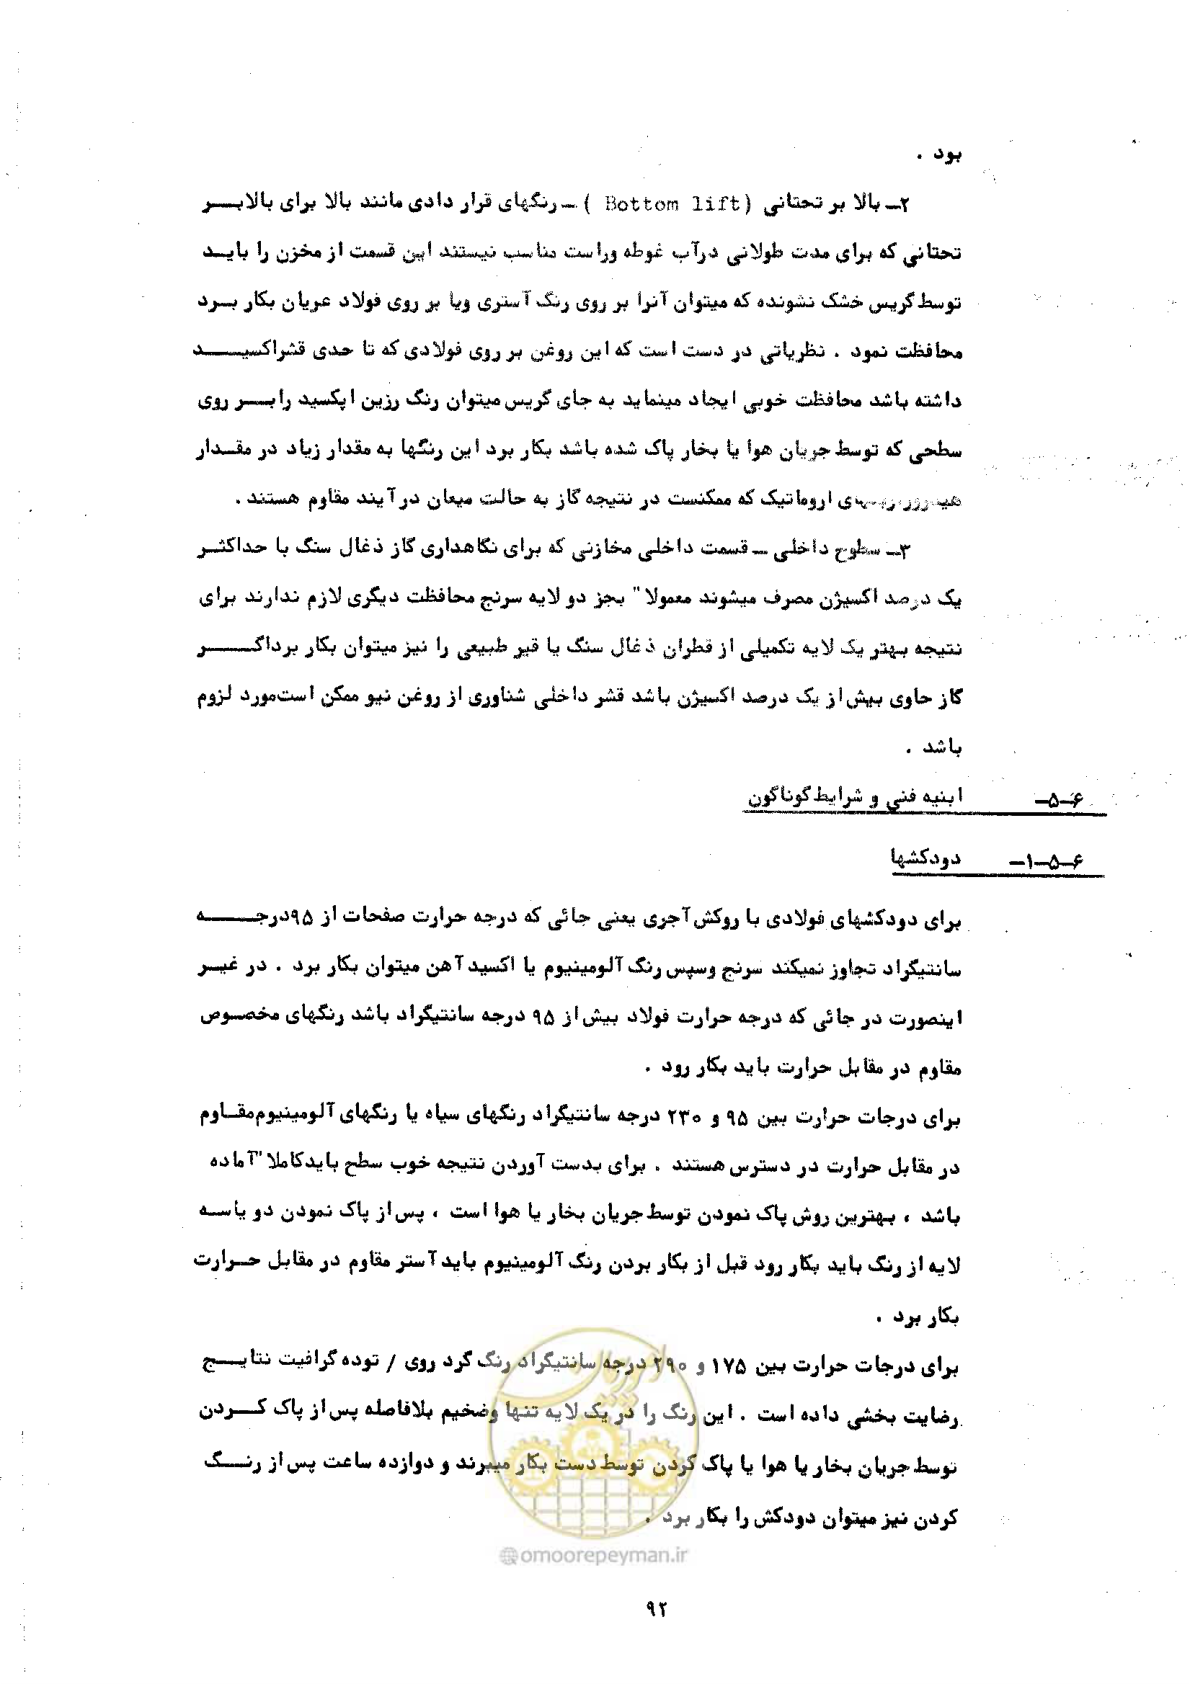 بود .
۲ـ بالا بر تحتانی (Bottom lift ) ـ رنگهای قرار دادی مانند بالا برای بالابر
تحتانی که برای مدت طولانی درآب غوطه وراست مناسب نیستند این قسمت از مخزن را باید
توسط گریس خشک نشونده که میتوان آنرا بر روی رنگ آستری ویا بر روی فولاد عریان بکار برد
محافظت نمود . نظریاتی در دست است که این روغن بر روی فولادی که تا حدی قشراکسید
داشته باشد محافظت خوبی ایجاد مینماید به جای گریس میتوان رنگ رزین اپکسید رابر روی
سطحی که توسط جریان هوا یا بخار پاک شده باشد بکار برد این رنگها به مقدار زیاد در مقدار
اروماتیک که ممکنست در نتیجه گاز به حالت میعان درآیند مقاوم هستند .
۳ـ سطوح داخلی ـ قسمت داخلی مخازنی که برای نگاهداری گاز ذغال سنگ با حداکثر
یک درصد اکسیژن مصرف میشوند معمولا" بجز دو لایه سرنج محافظت دیگری لازم ندارند برای
نتیجه بهتر یک لایه تکمیلی از قطران ذغال سنگ یا قیر طبیعی را نیز میتوان بکار برداگر
گاز حاوی بیش از یک درصد اکسیژن باشد قشر داخلی شناوری از روغن نیو ممکن است‌مورد لزوم
باشد .
۶ـ۵ـ ابنیه فنی و شرایط گوناگون
۶ـ۵ـ۱ـ دودکشها
برای دودکشهای فولادی با روکش آجری یعنی جائی که درجه حرارت صفحات از ۹۵درجه
سانتیگراد تجاوز نمیکند سرنج وسپس رنگ آلومینیوم یا اکسید آهن میتوان بکار برد . در غیر
اینصورت در جائی که درجه حرارت فولاد بیش از ۹۵ درجه سانتیگراد باشد رنگهای مخصوص
مقاوم در مقابل حرارت باید بکار رود .
برای درجات حرارت بین ۹۵ و ۲۳۰ درجه سانتیگراد رنگهای سیاه یا رنگهای آلومینیوم‌مقاوم
در مقابل حرارت در دسترس هستند . برای بدست آوردن نتیجه خوب سطح بایدکاملا"آماده
باشد ، بهترین روش پاک نمودن توسط جریان بخار یا هوا است ، پس از پاک نمودن دو یاسه
لایه از رنگ باید بکار رود قبل از بکار بردن رنگ آلومینیوم باید آستر مقاوم در مقابل حرارت
بکار برد .
برای درجات حرارت بین ۱۷۵ و ۲۹۰ درجه سانتیگراد رنگ گرد روی / توده گرافیت نتایج
رضایت بخشی داده است . این رنگ را در یک لایه تنها وضخیم بلافاصله پس از پاک کردن
توسط جریان بخار یا هوا یا پاک کردن توسط دست بکار میبرند و دوازده ساعت پس از رنگ
کردن نیز میتوان دودکش را بکار برد .
@omoorepeyman.ir
۹۲